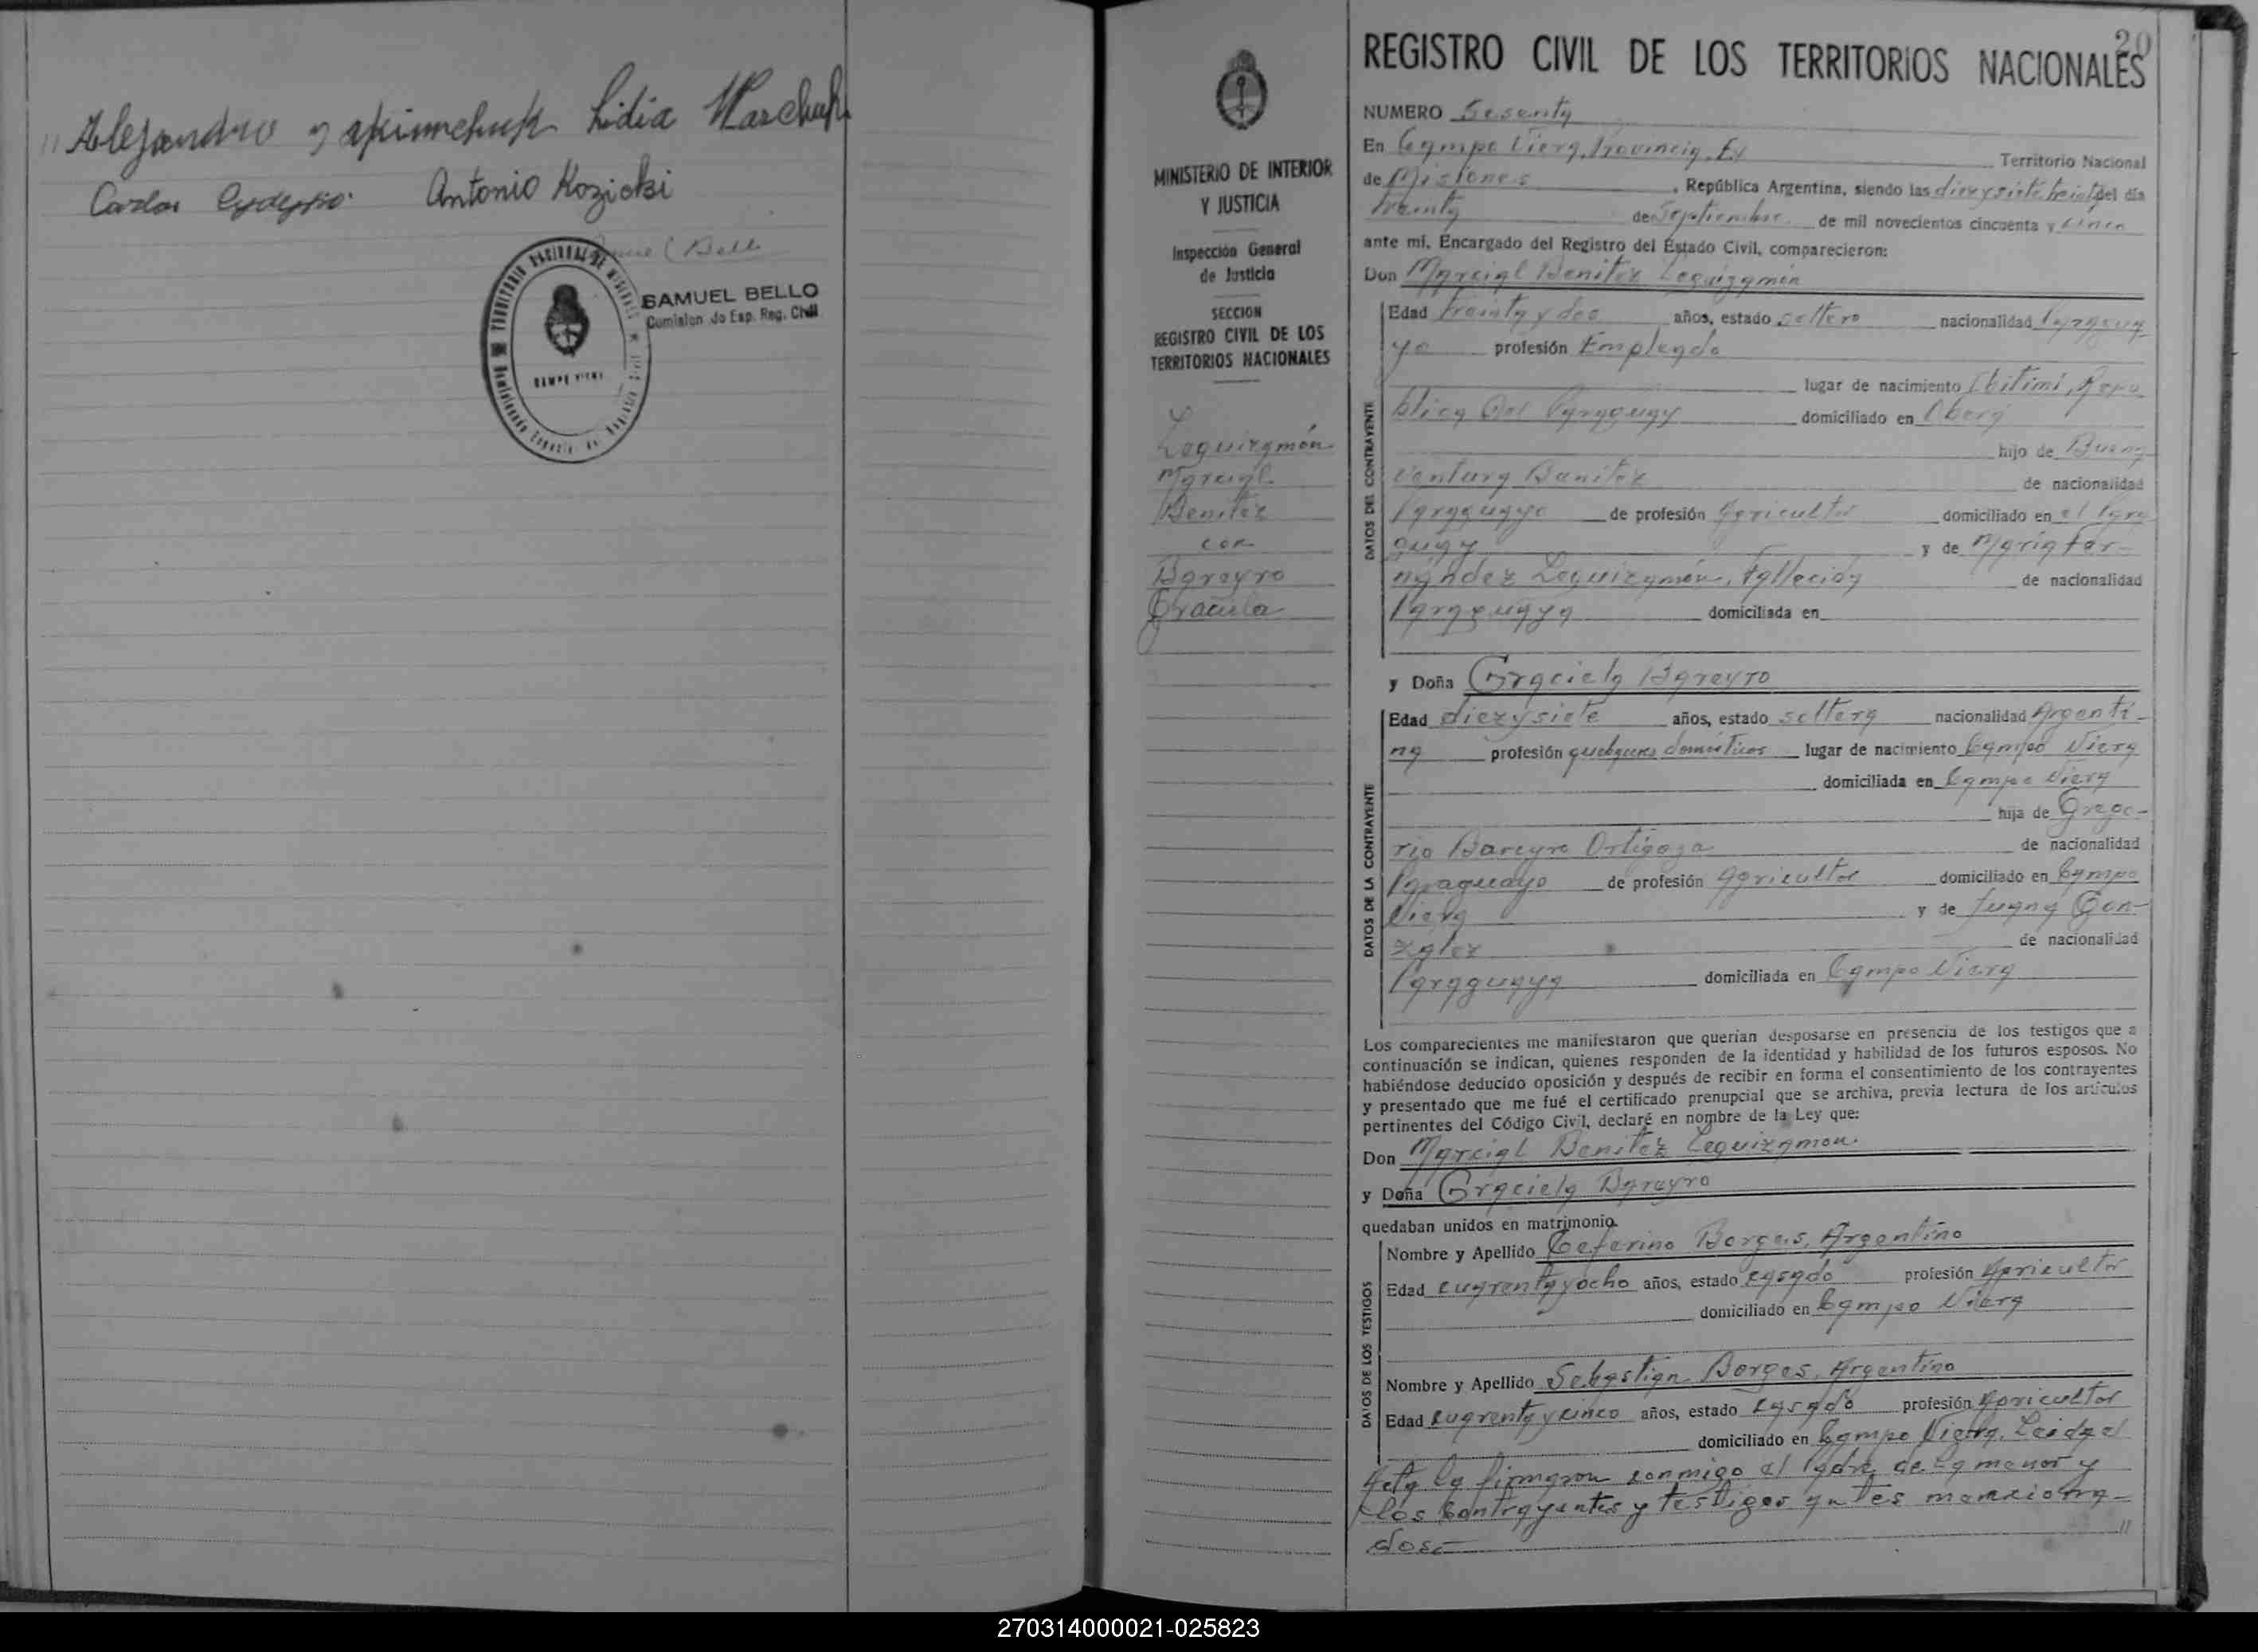 Alejandro Lidia
Carlos Antonio Kozicki
SAMUEL BELLO
Comision do Esp. Reg. Civil
20
MINISTERIO DE INTERIOR
Y JUSTICIA
Inspección General
de Justicia
SECCION
REGISTRO CIVIL DE LOS
TERRITORIOS NACIONALES
Leguizamón
Marcial
Benitez
con
Bareyro
Graciela
REGISTRO CIVIL DE LOS TERRITORIOS NACIONALES
NUMERO Sesenta
En Campo Viera, Provincia, Ex Territorio Nacional
de Misiones, República Argentina, siendo las diez y siete treinta del día
treinta de Septiembre de mil novecientos cincuenta y cinco
ante mí, Encargado del Registro del Estado Civil, comparecieron:
Don Marcial Benitez Leguizamón
DATOS DEL CONTRAYENTE
Edad treinta y dos años, estado soltero nacionalidad Paragua-
yo profesión Empleado
lugar de nacimiento Ibitimí, Repú-
blica Del Paraguay domiciliado en Oberá
hijo de Buena-
ventura Benitez de nacionalidad
Paraguayo de profesión Agricultor domiciliado en el Para-
guay y de María Fer-
nández Leguizamón, Fallecida de nacionalidad
Paraguaya domiciliada en
y Doña Graciela Bareyro
DATOS DE LA CONTRAYENTE
Edad diez y siete años, estado soltera nacionalidad Argenti-
na profesión quehaceres domésticos lugar de nacimiento Campo Viera
domiciliada en Campo Viera
hija de Grego-
rio Bareyro Ortigoza de nacionalidad
Paraguayo de profesión Agricultor domiciliado en Campo
Viera y de Juana Gon-
zalez de nacionalidad
Paraguaya domiciliada en Campo Viera
Los comparecientes me manifestaron que querían desposarse en presencia de los testigos que a
continuación se indican, quienes responden de la identidad y habilidad de los futuros esposos. No
habiéndose deducido oposición y después de recibir en forma el consentimiento de los contrayentes
y presentado que me fué el certificado prenupcial que se archiva, previa lectura de los artículos
pertinentes del Código Civil, declaré en nombre de la Ley que:
Don Marcial Benitez Leguizamon.
y Doña Graciela Bareyro
quedaban unidos en matrimonio.
DATOS DE LOS TESTIGOS
Nombre y Apellido Ceferino Borges, Argentino
Edad cuarenta y ocho años, estado casado profesión Agricultor
domiciliado en Campo Viera
Nombre y Apellido Sebastian Borges, Argentino
Edad cuarenta y cinco años, estado casado profesión Agricultor
domiciliado en Campo Viera. Leida el
Acta la firmaron conmigo el Padre de la menor y
los Contrayentes y testigos antes menciona-
dos.-
270314000021-025823